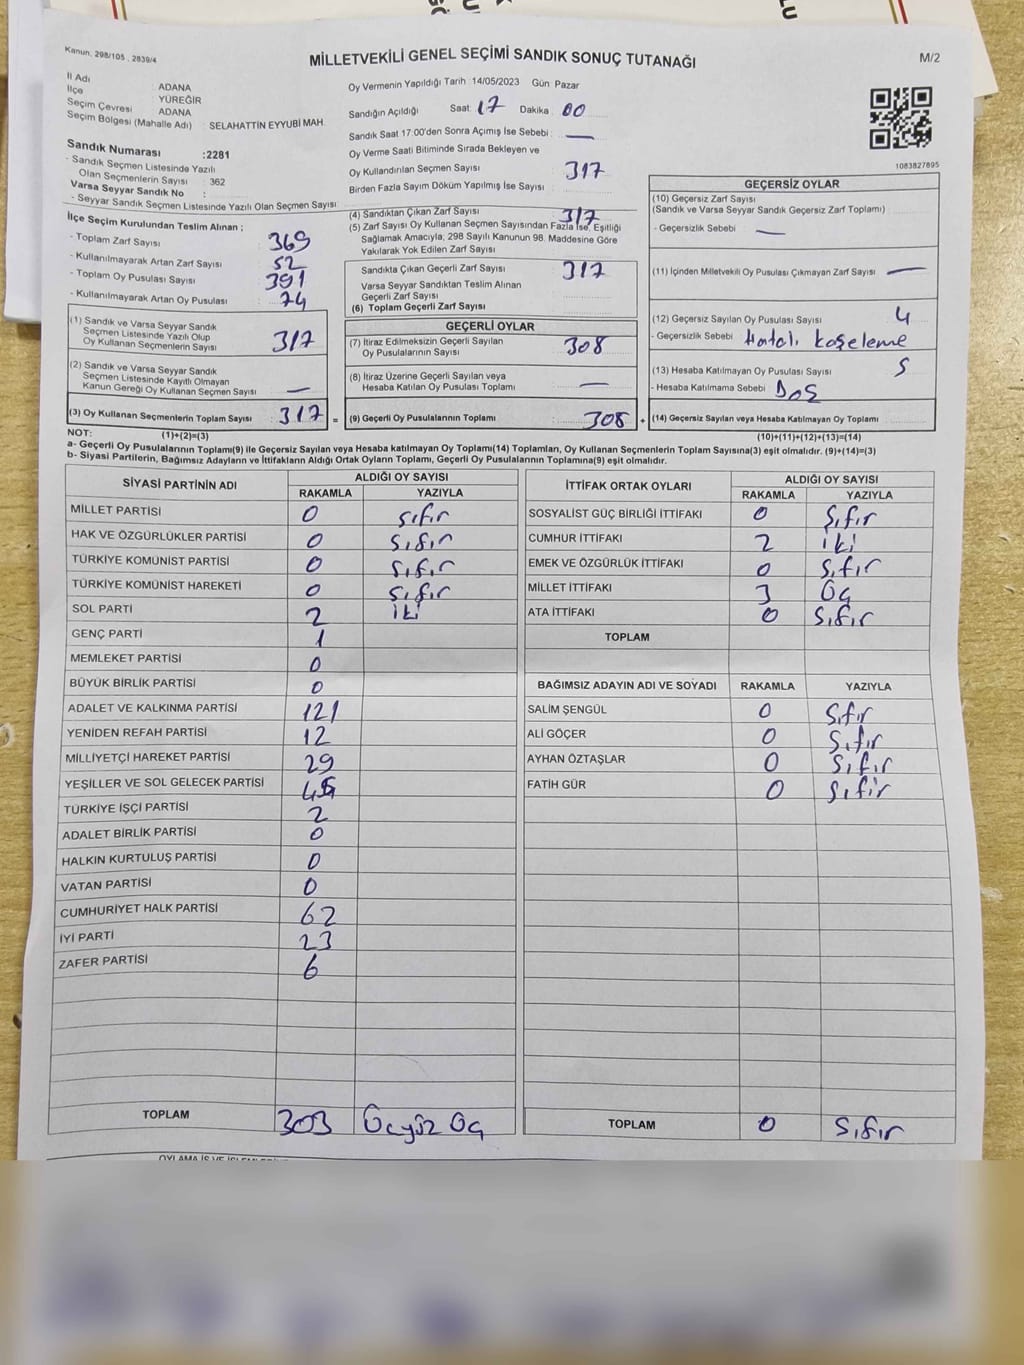 Kanun. 298/105 , 2839/4
MİLLETVEKİLİ GENEL SEÇİMİ SANDIK SONUÇ TUTANAĞI
M/2
İl Adı ADANA
İlçe YÜREĞİR
Seçim Çevresi ADANA
Seçim Bölgesi (Mahalle Adı) : SELAHATTİN EYYUBİ MAH.
Sandık Numarası :2281
- Sandık Seçmen Listesinde Yazılı
Olan Seçmenlerin Sayısı : 362
Varsa Seyyar Sandık No :
- Seyyar Sandık Seçmen Listesinde Yazılı Olan Seçmen Sayısı
İlçe Seçim Kurulundan Teslim Alınan ;
- Toplam Zarf Sayısı : 369
- Kullanılmayarak Artan Zarf Sayısı : 52
- Toplam Oy Pusulası Sayısı : 391
- Kullanılmayarak Artan Oy Pusulası : 74
(1) Sandık ve Varsa Seyyar Sandık
Seçmen Listesinde Yazılı Olup
Oy Kullanan Seçmenlerin Sayısı 317
(2) Sandık ve Varsa Seyyar Sandık
Seçmen Listesinde Kayıtlı Olmayan
Kanun Gereği Oy Kullanan Seçmen Sayısı —
(3) Oy Kullanan Seçmenlerin Toplam Sayısı 317 =
Oy Vermenin Yapıldığı Tarih :14/05/2023 Gün Pazar
Sandığın Açıldığı Saat: 17 Dakika 00
Sandık Saat 17:00'den Sonra Açımış İse Sebebi : —
Oy Verme Saati Bitiminde Sırada Bekleyen ve
Oy Kullandırılan Seçmen Sayısı 317
Birden Fazla Sayım Döküm Yapılmış İse Sayısı
(4) Sandıktan Çıkan Zarf Sayısı 317
(5) Zarf Sayısı Oy Kullanan Seçmen Sayısından Fazla İse, Eşitliği
Sağlamak Amacıyla; 298 Sayılı Kanunun 98. Maddesine Göre
Yakılarak Yok Edilen Zarf Sayısı
Sandıkta Çıkan Geçerli Zarf Sayısı 317
Varsa Seyyar Sandıktan Teslim Alınan
Geçerli Zarf Sayısı
(6) Toplam Geçerli Zarf Sayısı
GEÇERLİ OYLAR
(7) İtiraz Edilmeksizin Geçerli Sayılan
Oy Pusulalarının Sayısı 308
(8) İtiraz Üzerine Geçerli Sayılan veya
Hesaba Katılan Oy Pusulası Toplamı —
(9) Geçerli Oy Pusulalarının Toplamı 308 +
1083827895
GEÇERSİZ OYLAR
(10) Geçersiz Zarf Sayısı
(Sandık ve Varsa Seyyar Sandık Geçersiz Zarf Toplamı)
- Geçersizlik Sebebi —
(11) İçinden Milletvekili Oy Pusulası Çıkmayan Zarf Sayısı —
(12) Geçersiz Sayılan Oy Pusulası Sayısı 4
- Geçersizlik Sebebi : Hatalı kaşeleme
(13) Hesaba Katılmayan Oy Pusulası Sayısı 5
- Hesaba Katılmama Sebebi BOŞ
(14) Geçersiz Sayılan veya Hesaba Katılmayan Oy Toplamı
NOT: (1)+(2)=(3) (10)+(11)+(12)+(13)=(14)
a- Geçerli Oy Pusulalarının Toplamı(9) ile Geçersiz Sayılan veya Hesaba katılmayan Oy Toplamı(14) Toplamları, Oy Kullanan Seçmenlerin Toplam Sayısına(3) eşit olmalıdır. (9)+(14)=(3)
b- Siyasi Partilerin, Bağımsız Adayların ve İttifakların Aldığı Ortak Oyların Toplamı, Geçerli Oy Pusulalarının Toplamına(9) eşit olmalıdır.
SİYASİ PARTİNİN ADI ALDIĞI OY SAYISI
RAKAMLA YAZIYLA
MİLLET PARTİSİ 0 sıfır
HAK VE ÖZGÜRLÜKLER PARTİSİ 0 sıfır
TÜRKİYE KOMÜNİST PARTİSİ 0 sıfır
TÜRKİYE KOMÜNİST HAREKETİ 0 sıfır
SOL PARTİ 2 iki
GENÇ PARTİ 1
MEMLEKET PARTİSİ 0
BÜYÜK BİRLİK PARTİSİ 0
ADALET VE KALKINMA PARTİSİ 121
YENİDEN REFAH PARTİSİ 12
MİLLİYETÇİ HAREKET PARTİSİ 29
YEŞİLLER VE SOL GELECEK PARTİSİ
TÜRKİYE İŞÇİ PARTİSİ 2
ADALET BİRLİK PARTİSİ 0
HALKIN KURTULUŞ PARTİSİ 0
VATAN PARTİSİ 0
CUMHURİYET HALK PARTİSİ 62
İYİ PARTİ 23
ZAFER PARTİSİ 6
TOPLAM 303 Üçyüz Üç
İTTİFAK ORTAK OYLARI ALDIĞI OY SAYISI
RAKAMLA YAZIYLA
SOSYALİST GÜÇ BİRLİĞİ İTTİFAKI 0 Sıfır
CUMHUR İTTİFAKI 2 iki
EMEK VE ÖZGÜRLÜK İTTİFAKI 0 Sıfır
MİLLET İTTİFAKI 3 Üç
ATA İTTİFAKI 0 Sıfır
TOPLAM
BAĞIMSIZ ADAYIN ADI VE SOYADI RAKAMLA YAZIYLA
SALİM ŞENGÜL 0 Sıfır
ALİ GÖÇER 0 Sıfır
AYHAN ÖZTAŞLAR 0 Sıfır
FATİH GÜR 0 Sıfır
TOPLAM 0 Sıfır